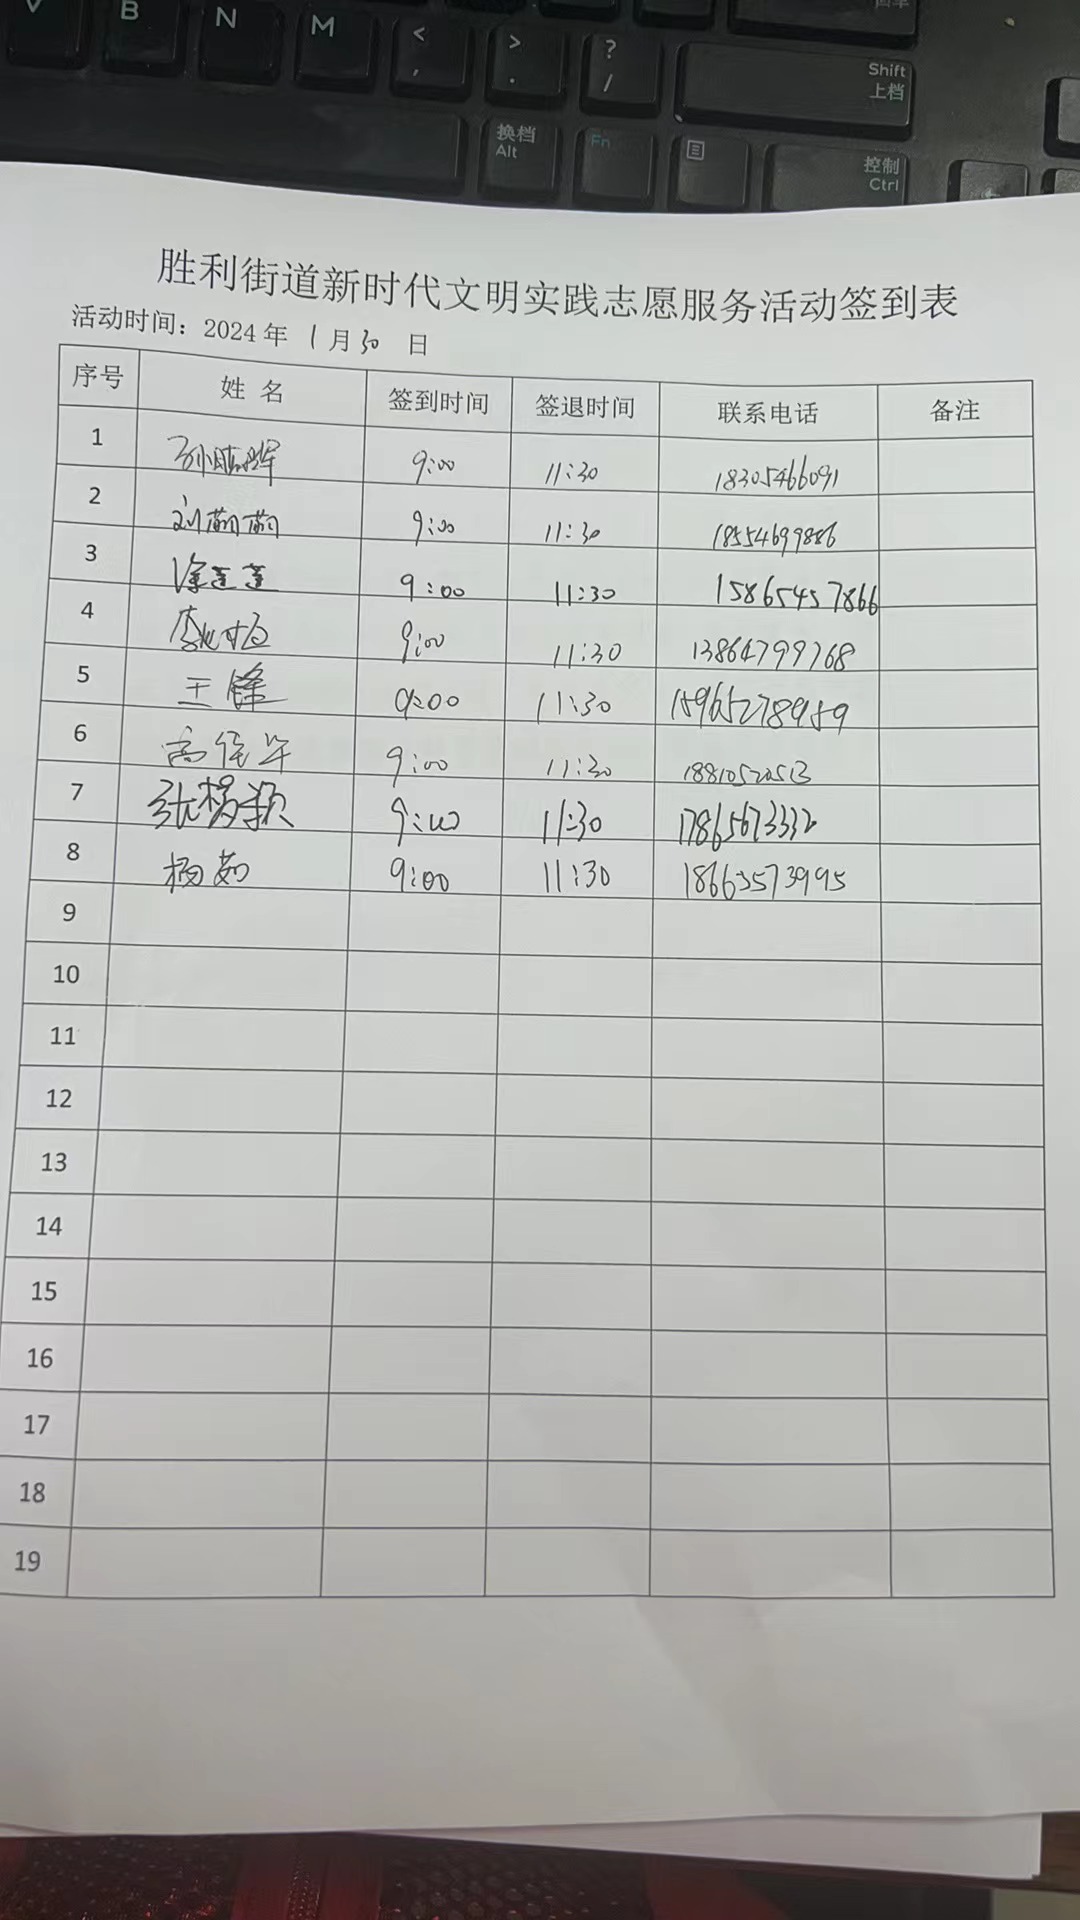 V B N M < , > . ? / Shift 上档
换档 Alt Fn 控制 Ctrl
胜利街道新时代文明实践志愿服务活动签到表
活动时间：2024 年 1 月 30 日
序号 姓 名 签到时间 签退时间 联系电话 备注
1 9:00 11:30 18305466091
2 刘萌萌 9:00 11:30 18554699886
3 徐莲莲 9:00 11:30 15865457866
4 9:00 11:30 13864799768
5 王锋 9:00 11:30 15965278959
6 9:00 11:30 18810520513
7 张杨颖 9:00 11:30 17865673332
8 杨茹 9:00 11:30 18663573995
9
10
11
12
13
14
15
16
17
18
19